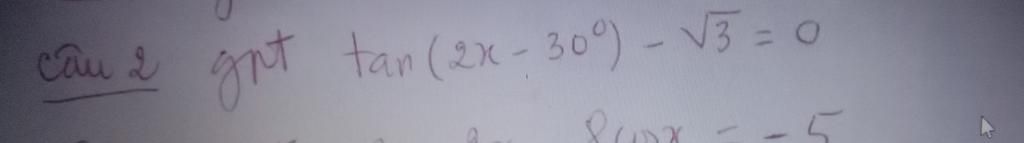 câu 2 gpt tan(2x - 30°) - √3 = 0
= -5